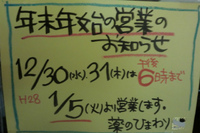 年末年始の営業の
お知らせ
12/30(水).31(木)は 午后6時まで
H28 1/5(火)より営業します。
薬のひまわり